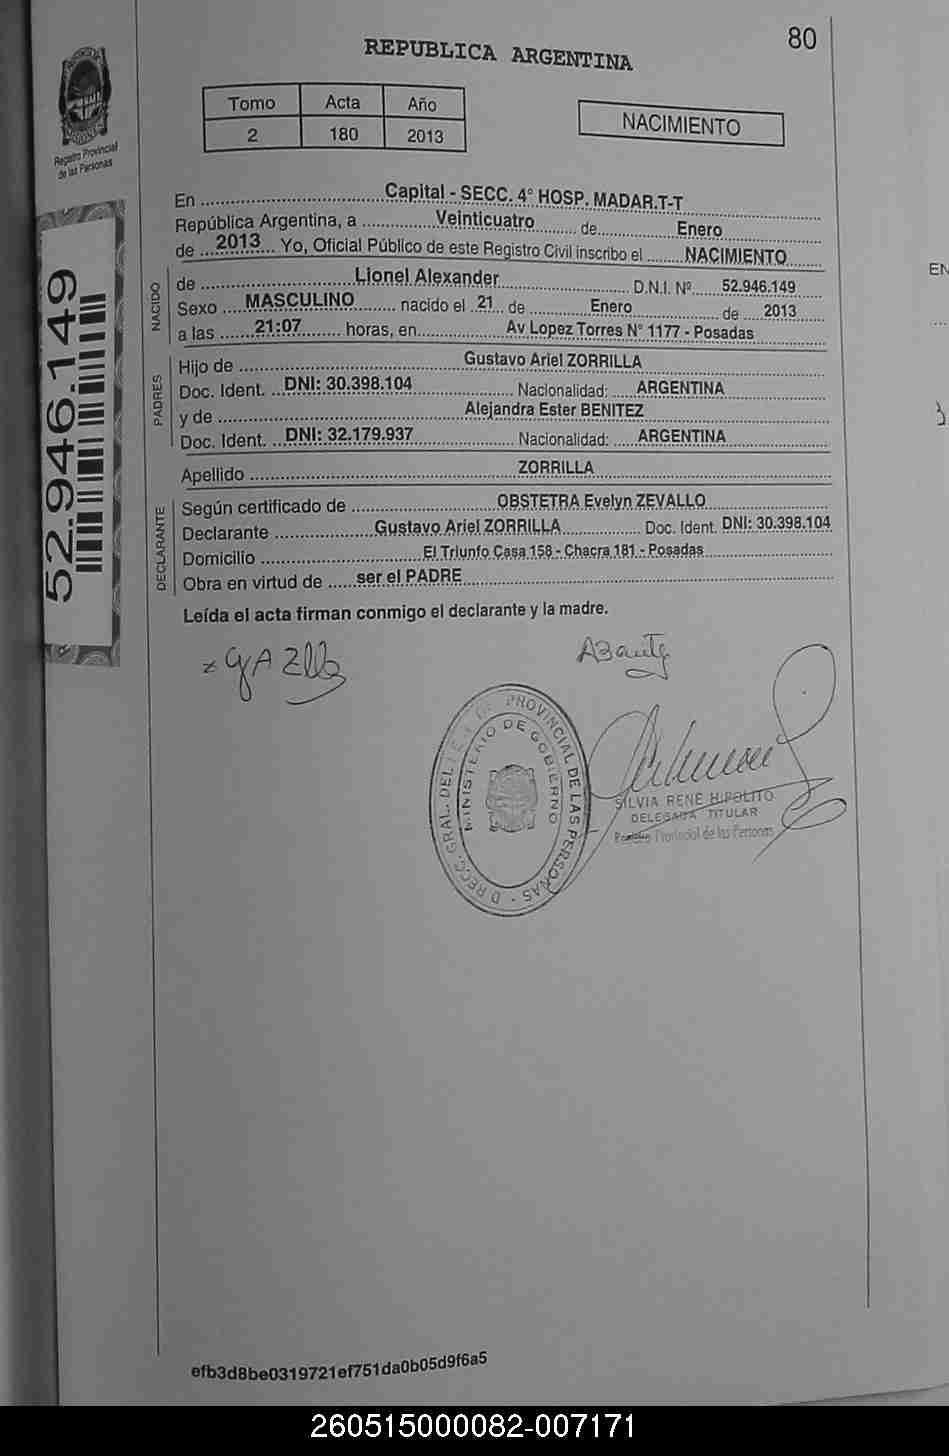 80
REPUBLICA ARGENTINA
Registro Provincial
de las Personas
Tomo Acta Año
2 180 2013
NACIMIENTO
52.946.149
En ........ Capital - SECC. 4° HOSP. MADAR.T-T
República Argentina, a ........ Veinticuatro ........ de ........ Enero
de ... 2013 ... Yo, Oficial Público de este Registro Civil inscribo el ........ NACIMIENTO
NACIDO
de ........ Lionel Alexander ........ D.N.I. Nº ..... 52.946.149
Sexo ..... MASCULINO ........ nacido el .. 21 .. de ........ Enero ........ de .... 2013
a las ........ 21:07 ........ horas, en ........ Av Lopez Torres N° 1177 - Posadas
PADRES
Hijo de ........ Gustavo Ariel ZORRILLA
Doc. Ident. .. DNI: 30.398.104 ........ Nacionalidad: ..... ARGENTINA
y de ........ Alejandra Ester BENITEZ
Doc. Ident. .. DNI: 32.179.937 ........ Nacionalidad: ..... ARGENTINA
Apellido ........ ZORRILLA
DECLARANTE
Según certificado de ........ OBSTETRA Evelyn ZEVALLO
Declarante ........ Gustavo Ariel ZORRILLA ........ Doc. Ident. DNI: 30.398.104
Domicilio ........ El Triunfo Casa 158 - Chacra 181 - Posadas
Obra en virtud de ..... ser el PADRE
Leída el acta firman conmigo el declarante y la madre.
PROVINCIAL DE LAS PERSONAS - DIRECC. GRAL. DEL
MINISTERIO DE GOBIERNO
SILVIA RENE HIPOLITO
DELEGADA TITULAR
Registro Provincial de las Personas
EN
efb3d8be0319721ef751da0b05d9f6a5
260515000082-007171